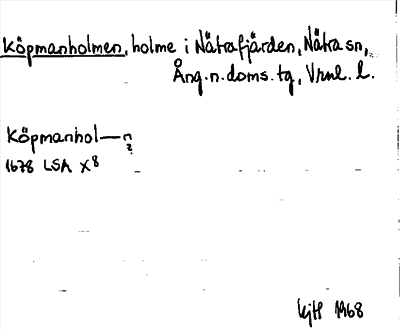 Köpmanholmen, holme i Nätrafjärden, Nätra sn,
Ång.n.doms.tg, Vrnl. l.
Köpmanhol—n
?
1678 LSA X8
KjH 1968